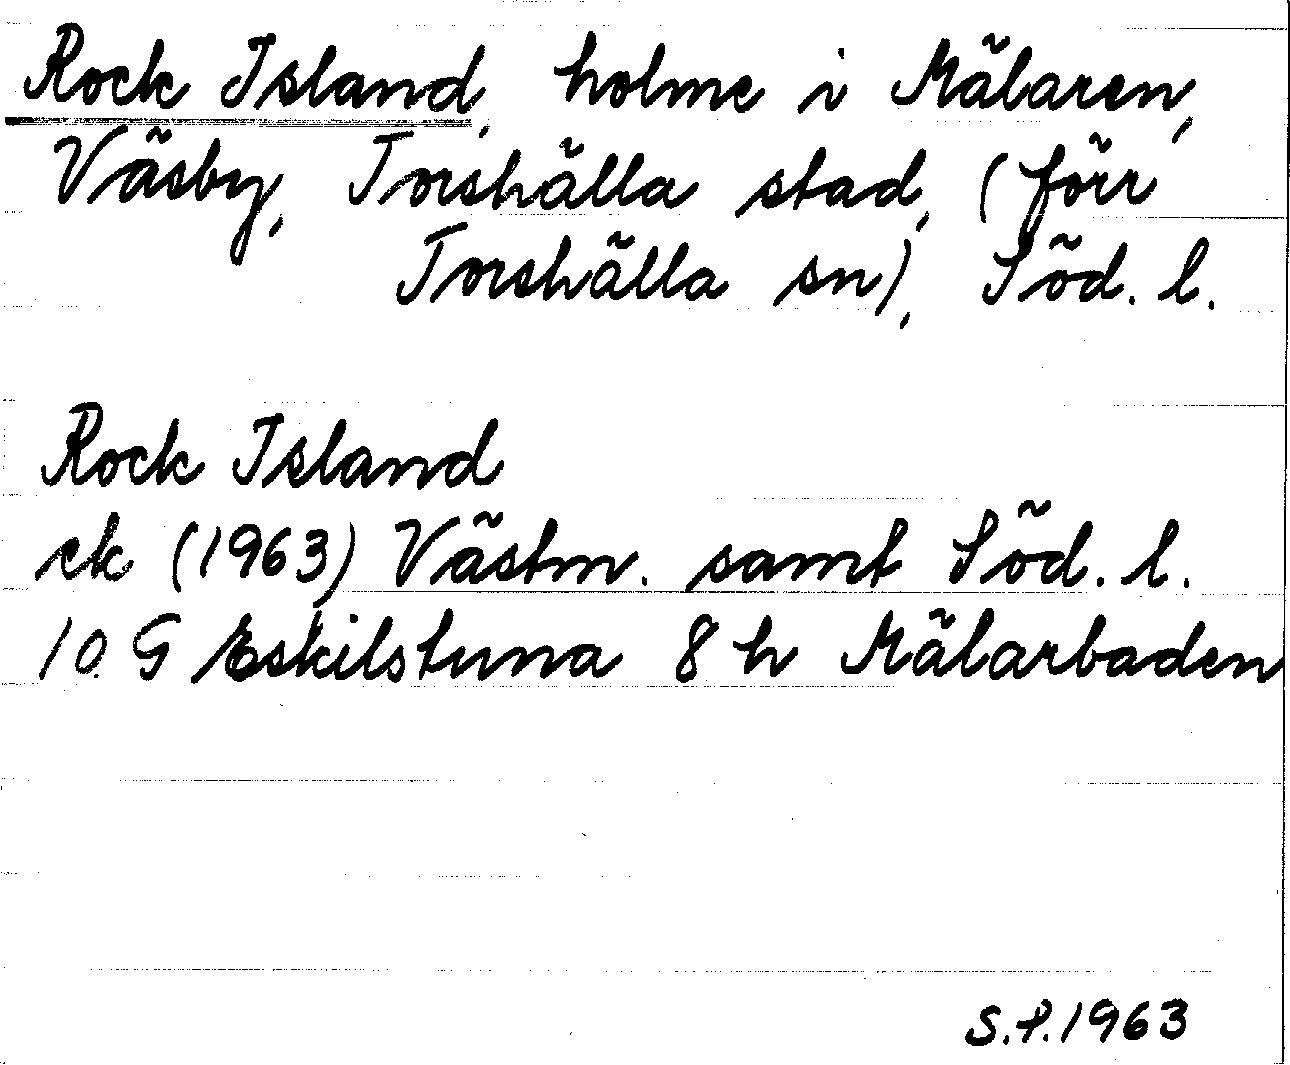 Rock Island, holme i Mälaren,
Väsby, Torshälla stad, (förr
Torshälla sn), Söd. l.
Rock Island
ek (1963) Västm. samt Söd. l.
10 G Eskilstuna 8 h Mälarbaden
S.P.1963